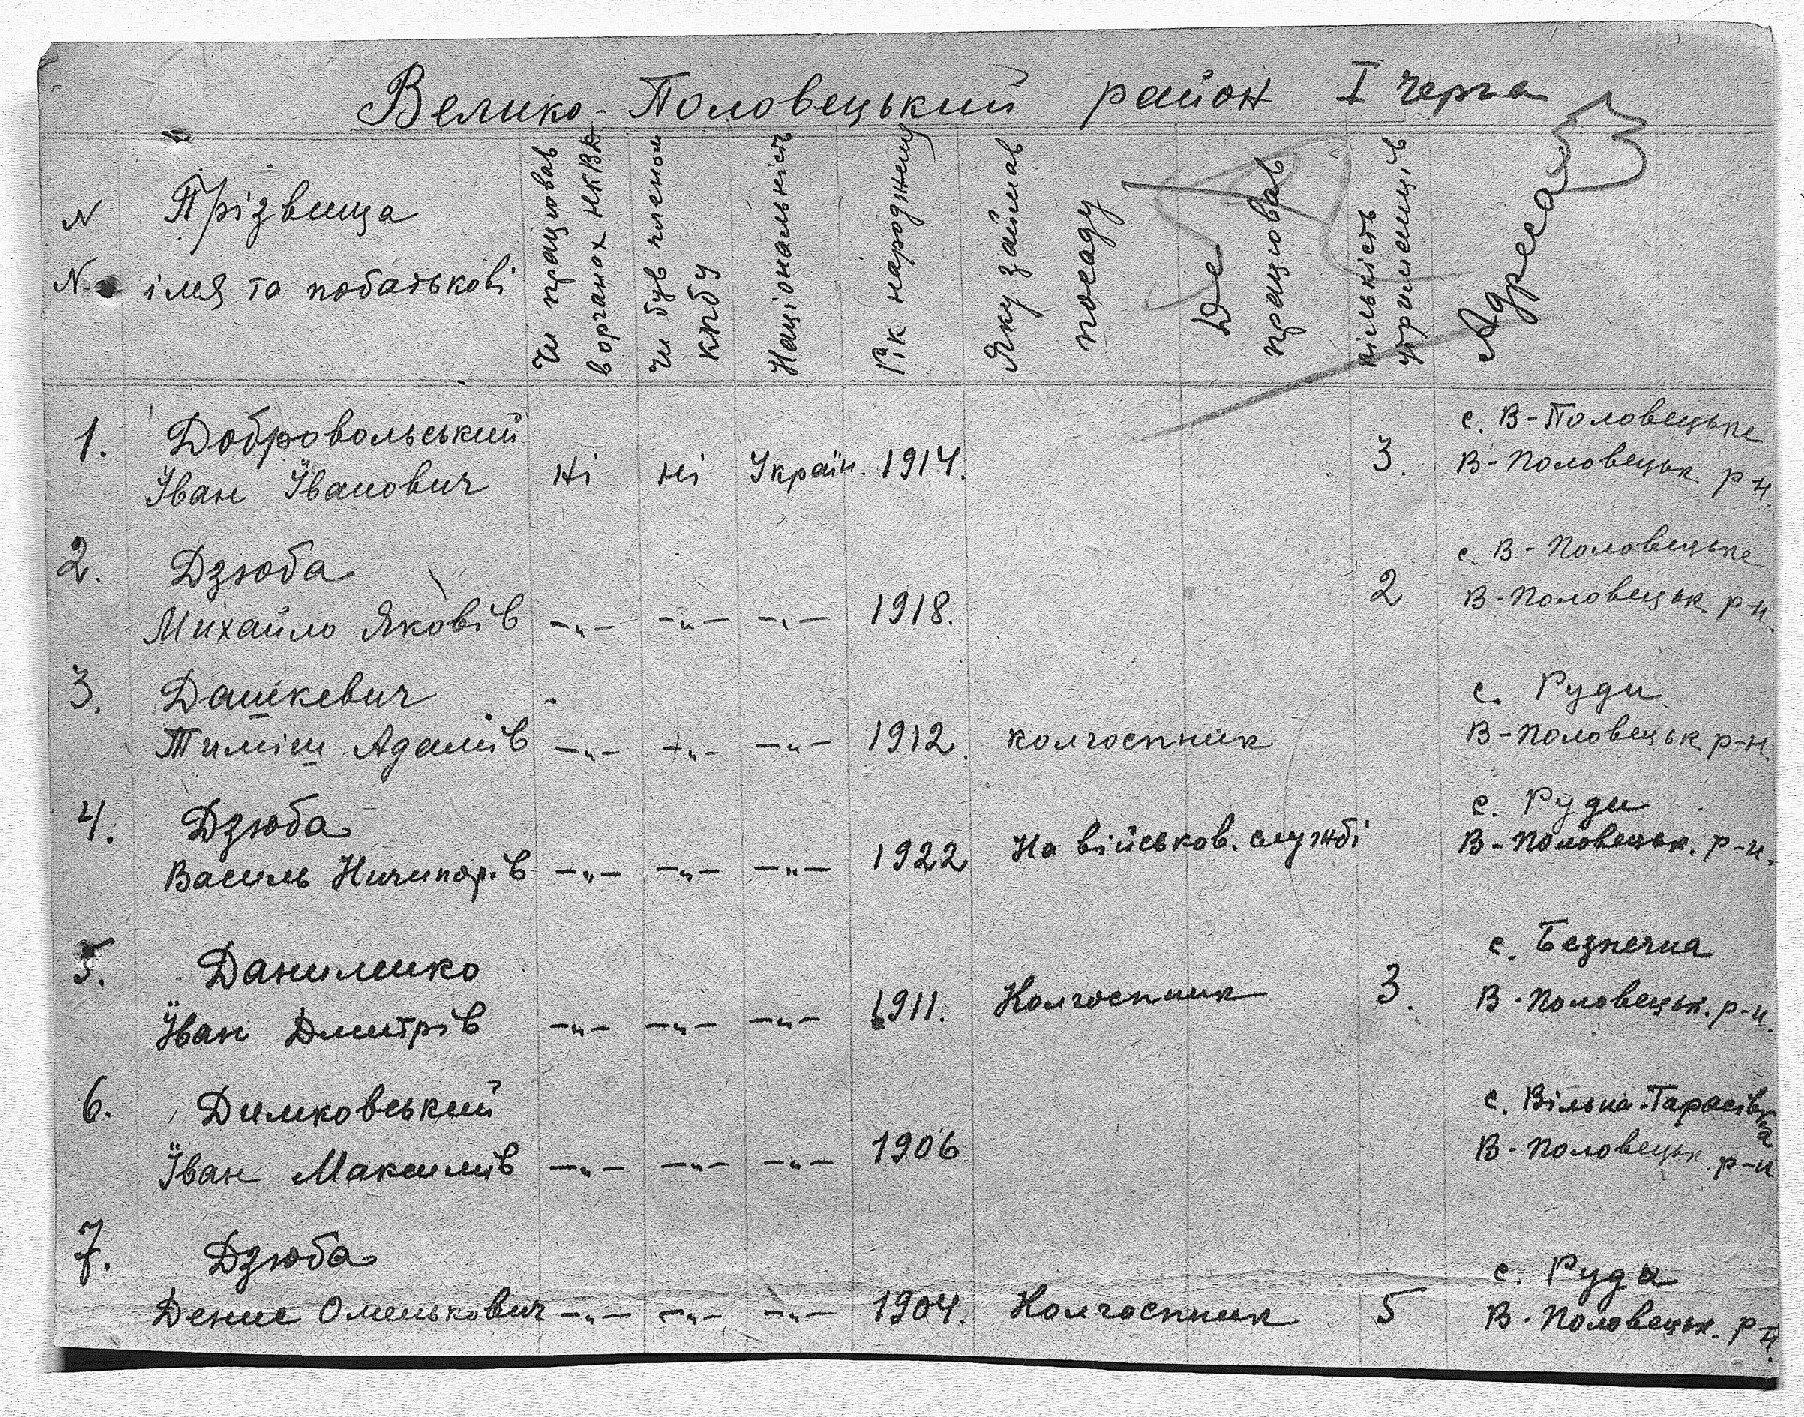 Велико-Половецький район I черга
N N Прізвища імя та побатькові
Чи працював в органах НКВД
Чи був членом КПбУ
Національність
Рік народження
Яку займав посаду
Де працював
кількість утриманців
Адреса
1. Добровольський с. В-Половецьке
Іван Іванович Ні ні Україн. 1914. 3. В-Половецьк р-н.
2. Дзюба с. В-Половецьке
Михайло Яковів —„— —„— —„— 1918. 2 В-Половецьк р-н.
3. Дашкевич с. Руди
Тиміш Адамів —„— —„— —„— 1912. колгоспник В-Половецьк р-н.
4. Дзюба с. Руди
Василь Ничипор.в —„— —„— —„— 1922 На військов. службі В-Половецьк. р-н.
5. Данилико с. Безпечна
Іван Дмитрів —„— —„— —„— 1911. Колгоспник 3. В-Половецьк. р-н.
6. Димковський с. Вільна-Тарасівка
Іван Максимів —„— —„— —„— 1906 В-Половецьк р-н
7. Дзюба с. Руда
Денис Оменькович —„— —„— —„— 1904. Колгоспник 5 В-Половецьк. р-н.